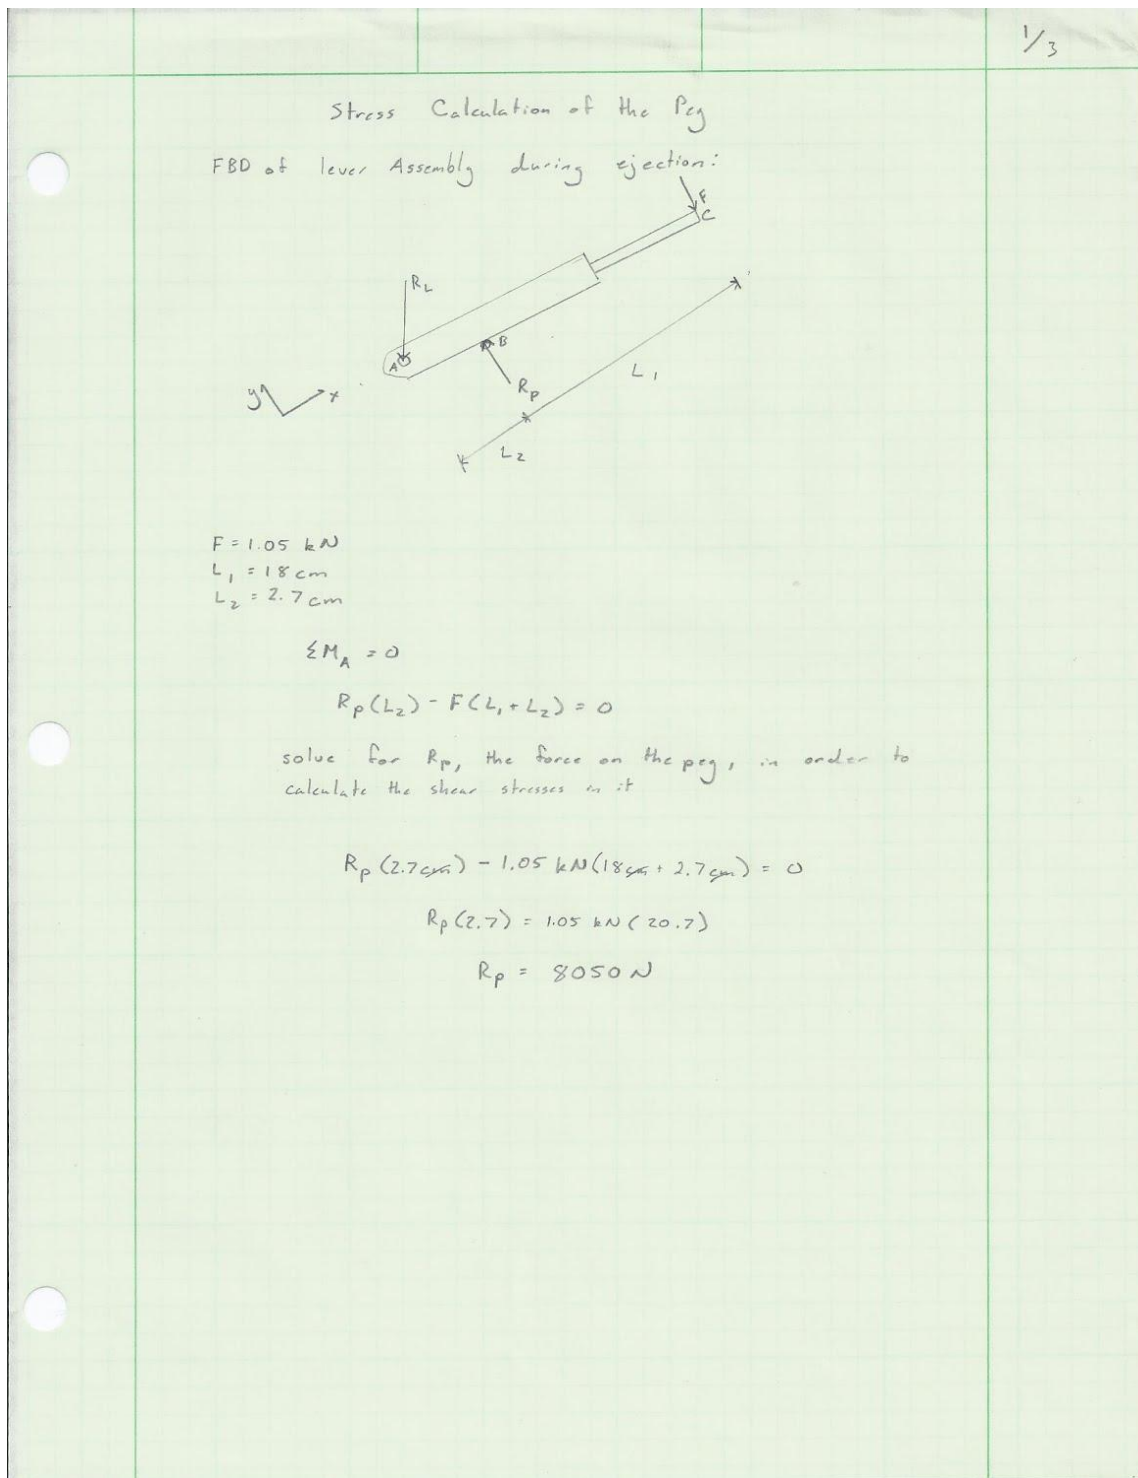 1/3
Stress Calculation of the Peg
FBD of lever Assembly during ejection:
F
C
RL
A
B
Rp
y
x
L1
L2
F = 1.05 kN
L1 = 18 cm
L2 = 2.7 cm
ΣMA = 0
Rp(L2) - F(L1 + L2) = 0
solve for Rp, the force on the peg, in order to
calculate the shear stresses in it
Rp(2.7cm) - 1.05 kN(18cm + 2.7cm) = 0
Rp(2.7) = 1.05 kN(20.7)
Rp = 8050 N